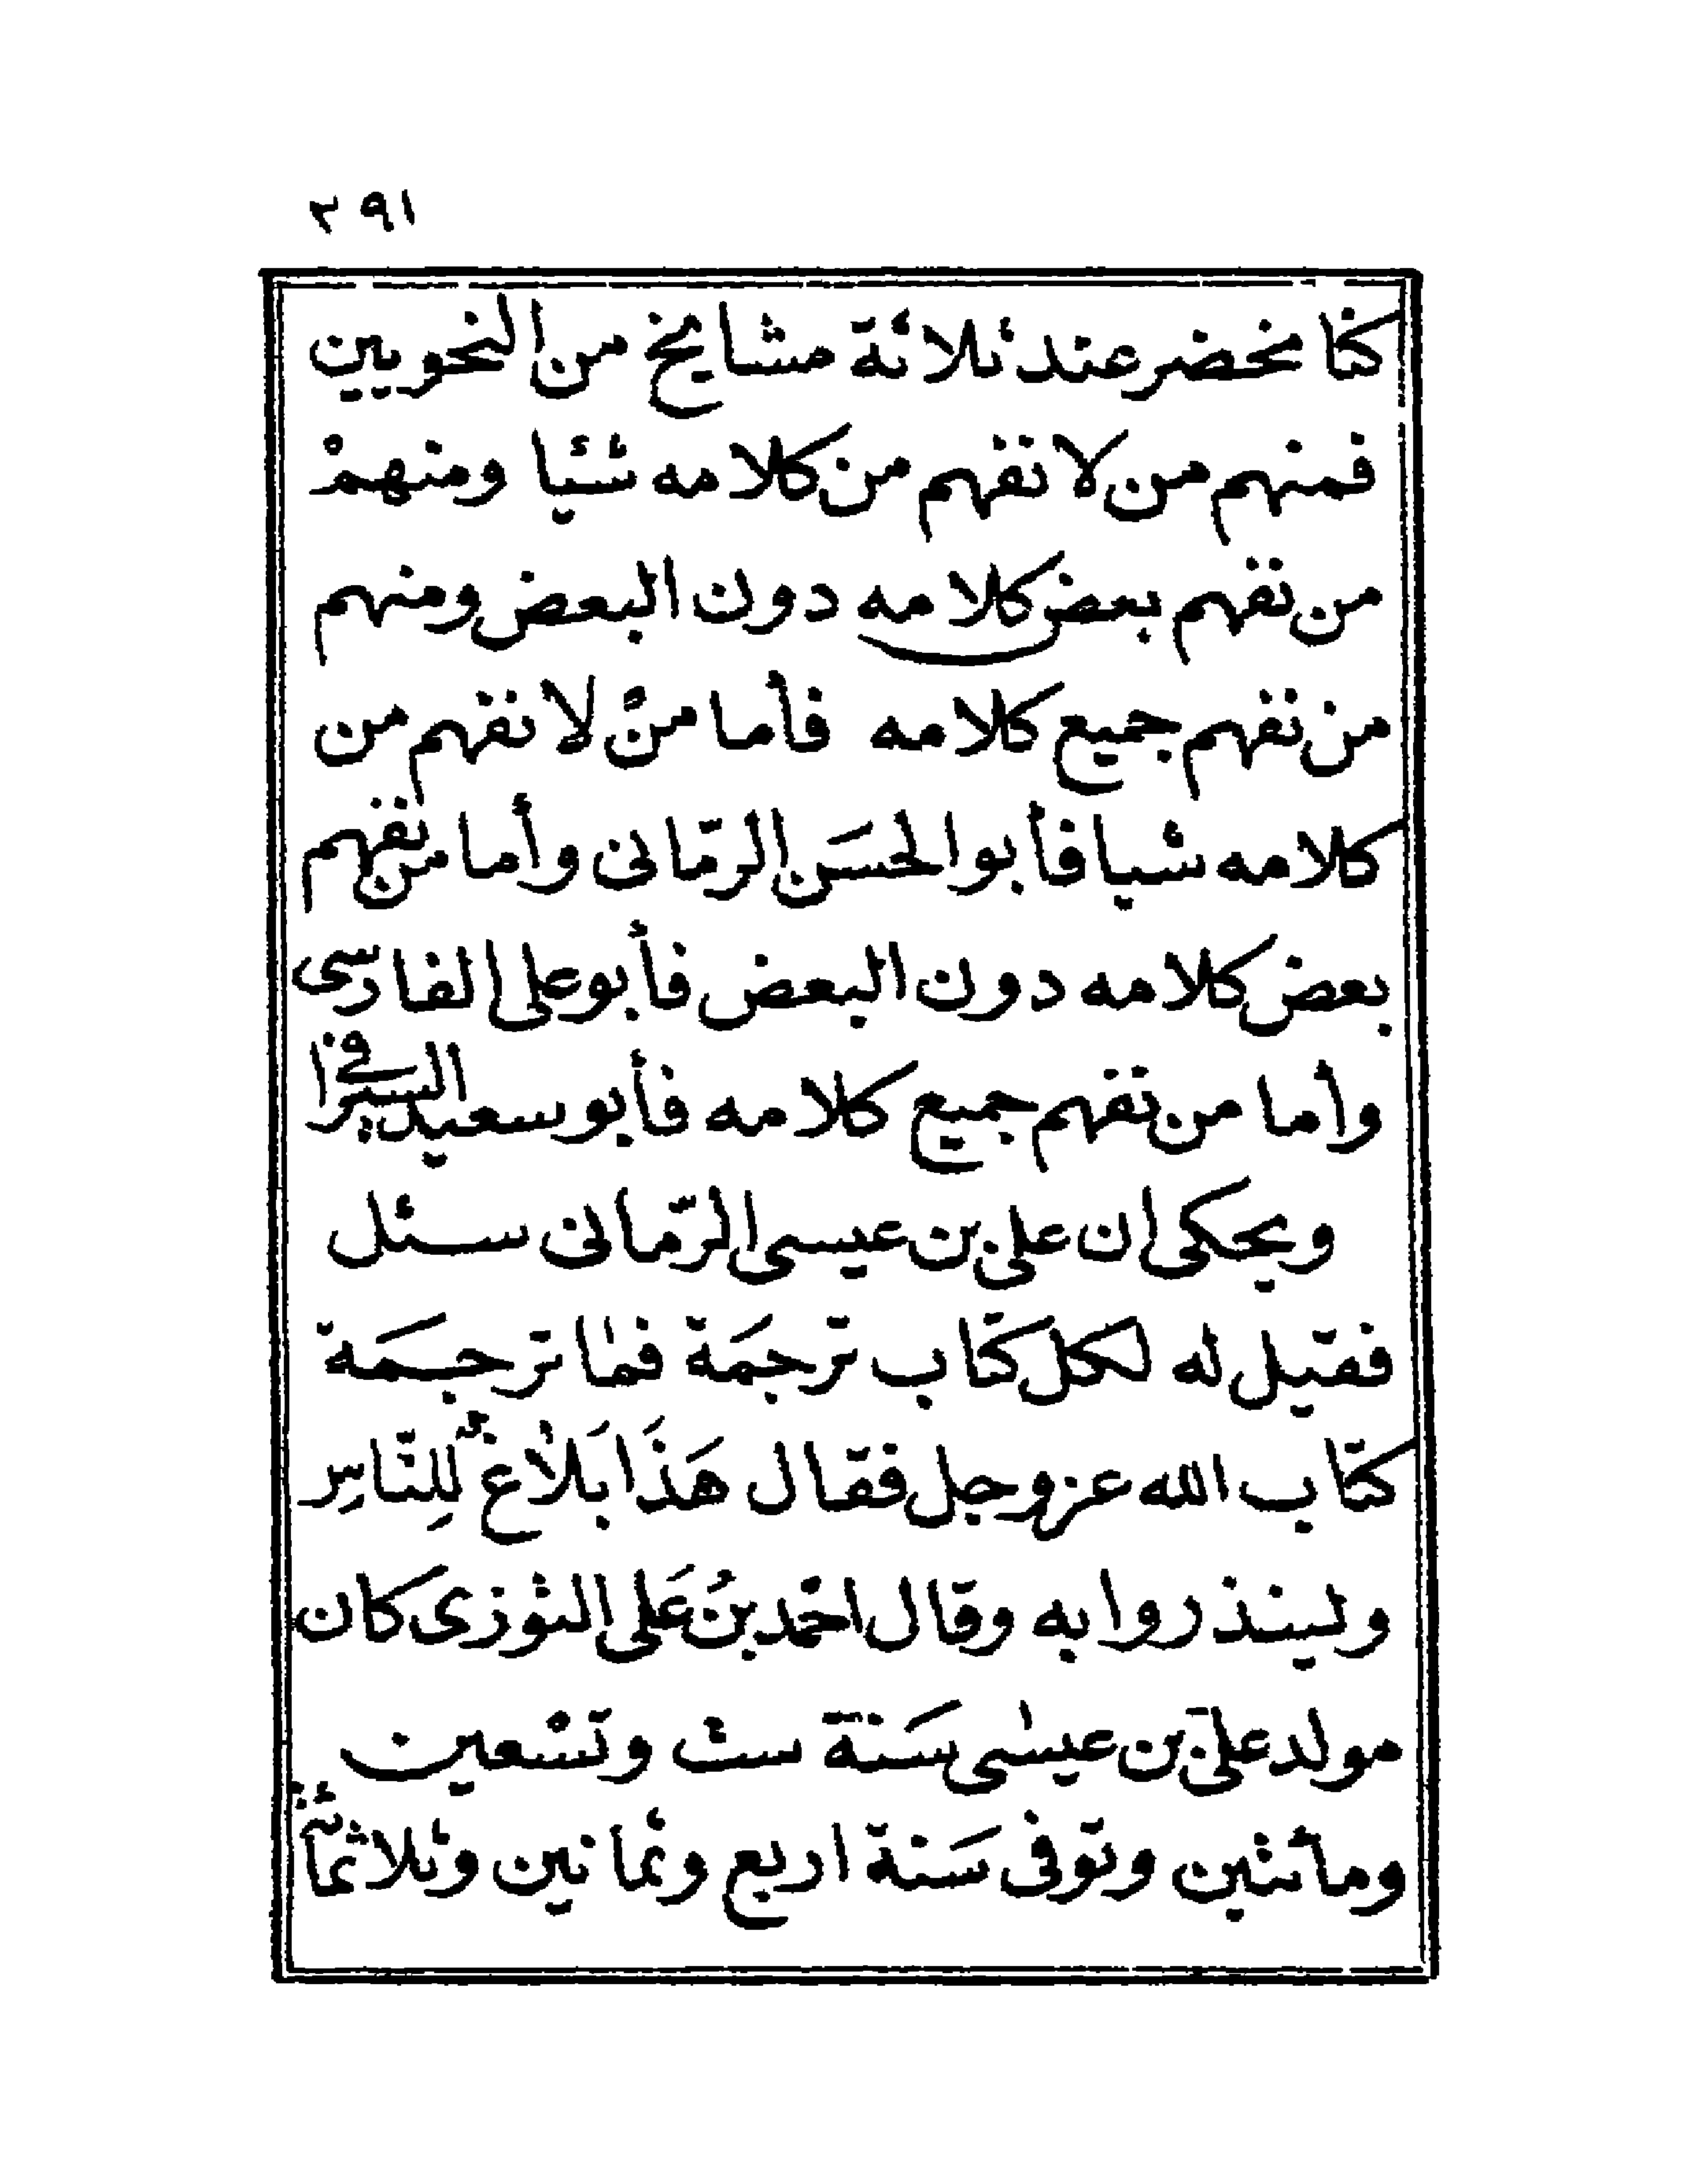 ٣٩١
كنا نحضر عند ثلاثة مشايخ من النحويين
فمنهم من لا نفهم من كلامه شئيا ومنهمْ
من نفهم بعض كلامه دون البعض ومنهم
من نفهم جميع كلامه فأما منْ لا نفهم من
كلامه شيا فأبو الحسَن الرمّانى وأما من نفهم
بعض كلامه دون البعض فأبو على الفارسى
وأما من نفهم جميع كلامه فأبو سعيد السيرافى
ويحكى ان على بن عيسى الرمّانى سئل
فقيل له لكل كتاب ترجمَة فما ترجمَة
كتاب الله عز وجل فقال هَذَا بَلاغٌ لِلنّاسِ
ولينذروا به وقال احمد بنُ عَلى التوزى كان
مولد علىّ بن عيسى سَنة ست وتسْعين
ومائتين وتوفى سَنة اربع وثمانين وثلاثمائة